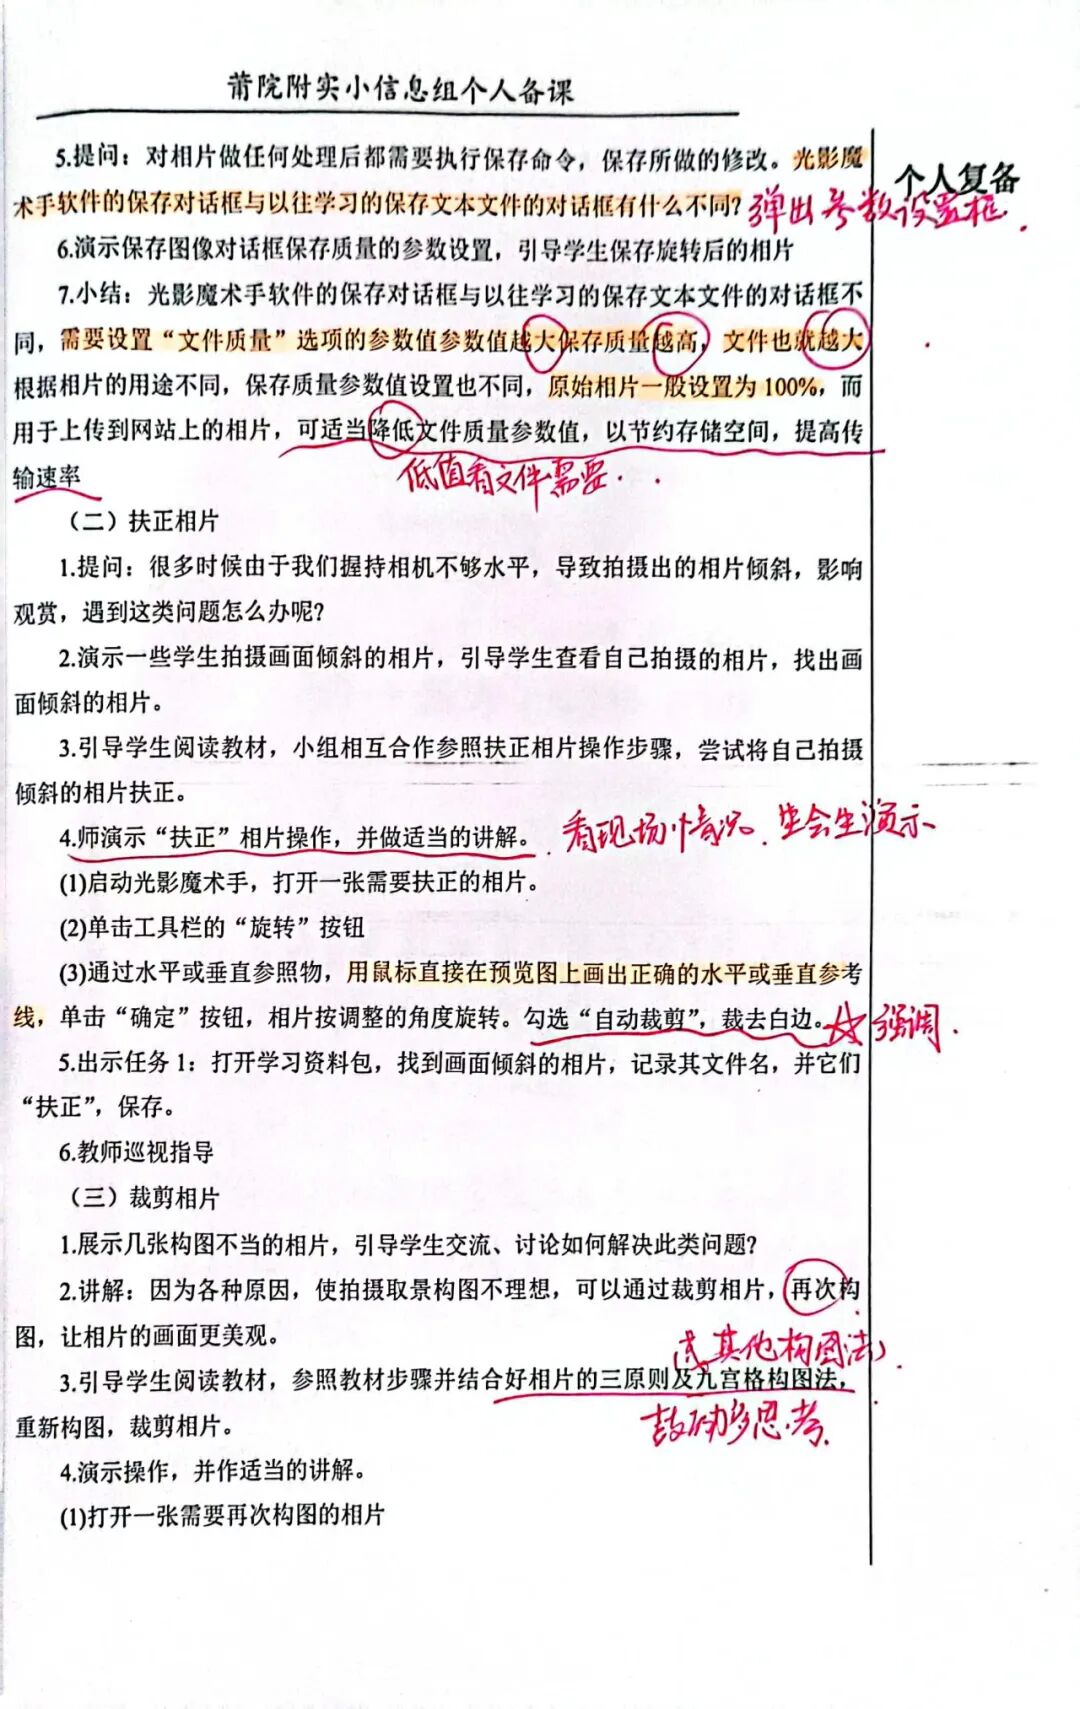 莆院附实小信息组个人备课
个人复备
5.提问：对相片做任何处理后都需要执行保存命令，保存所做的修改。光影魔
术手软件的保存对话框与以往学习的保存文本文件的对话框有什么不同?
弹出参数设置框.
6.演示保存图像对话框保存质量的参数设置，引导学生保存旋转后的相片
7.小结：光影魔术手软件的保存对话框与以往学习的保存文本文件的对话框不
同，需要设置“文件质量”选项的参数值参数值越大保存质量越高，文件也就越大
根据相片的用途不同，保存质量参数值设置也不同，原始相片一般设置为100%，而
用于上传到网站上的相片，可适当降低文件质量参数值，以节约存储空间，提高传
输速率
低值看文件需要..
（二）扶正相片
1.提问：很多时候由于我们握持相机不够水平，导致拍摄出的相片倾斜，影响
观赏，遇到这类问题怎么办呢?
2.演示一些学生拍摄画面倾斜的相片，引导学生查看自己拍摄的相片，找出画
面倾斜的相片。
3.引导学生阅读教材，小组相互合作参照扶正相片操作步骤，尝试将自己拍摄
倾斜的相片扶正。
4.师演示“扶正”相片操作，并做适当的讲解。
看现场情况、生会生演示
(1)启动光影魔术手，打开一张需要扶正的相片。
(2)单击工具栏的“旋转”按钮
(3)通过水平或垂直参照物，用鼠标直接在预览图上画出正确的水平或垂直参考
线，单击“确定”按钮，相片按调整的角度旋转。勾选“自动裁剪”，裁去白边。
☆强调.
5.出示任务1：打开学习资料包，找到画面倾斜的相片，记录其文件名，并它们
“扶正”，保存。
6.教师巡视指导
（三）裁剪相片
1.展示几张构图不当的相片，引导学生交流、讨论如何解决此类问题?
2.讲解：因为各种原因，使拍摄取景构图不理想，可以通过裁剪相片，再次构
图，让相片的画面更美观。
其他构图法)
3.引导学生阅读教材，参照教材步骤并结合好相片的三原则及九宫格构图法，
鼓励多思考
重新构图，裁剪相片。
4.演示操作，并作适当的讲解。
(1)打开一张需要再次构图的相片